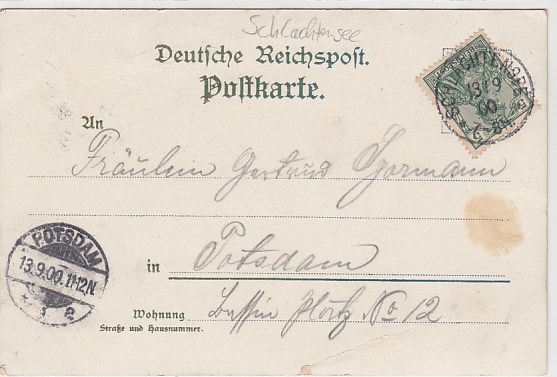 Schlachtensee
Deutsche Reichspost.
Postkarte.
An
Fräulein Gertrud Gormann
in Potsdam
Wohnung Bassin Platz No 12
Straße und Hausnummer.
POTSDAM
13.9.00.11-12N.
13 9
00